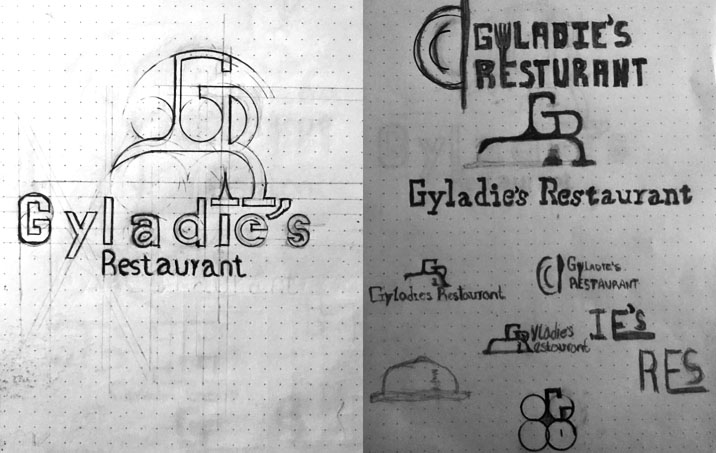 GR
Gyladie's
Restaurant
GYLADIE'S
RESTURANT
GR
Gyladie's Restaurant
GR
Gyladie's Restaurant
GYLADIE'S
RESTAURANT
Gyladie's
Restaurant
IE'S
RES
G